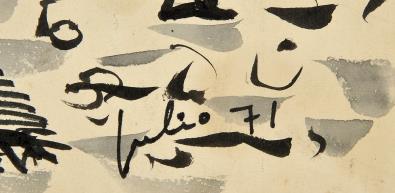 julio 71